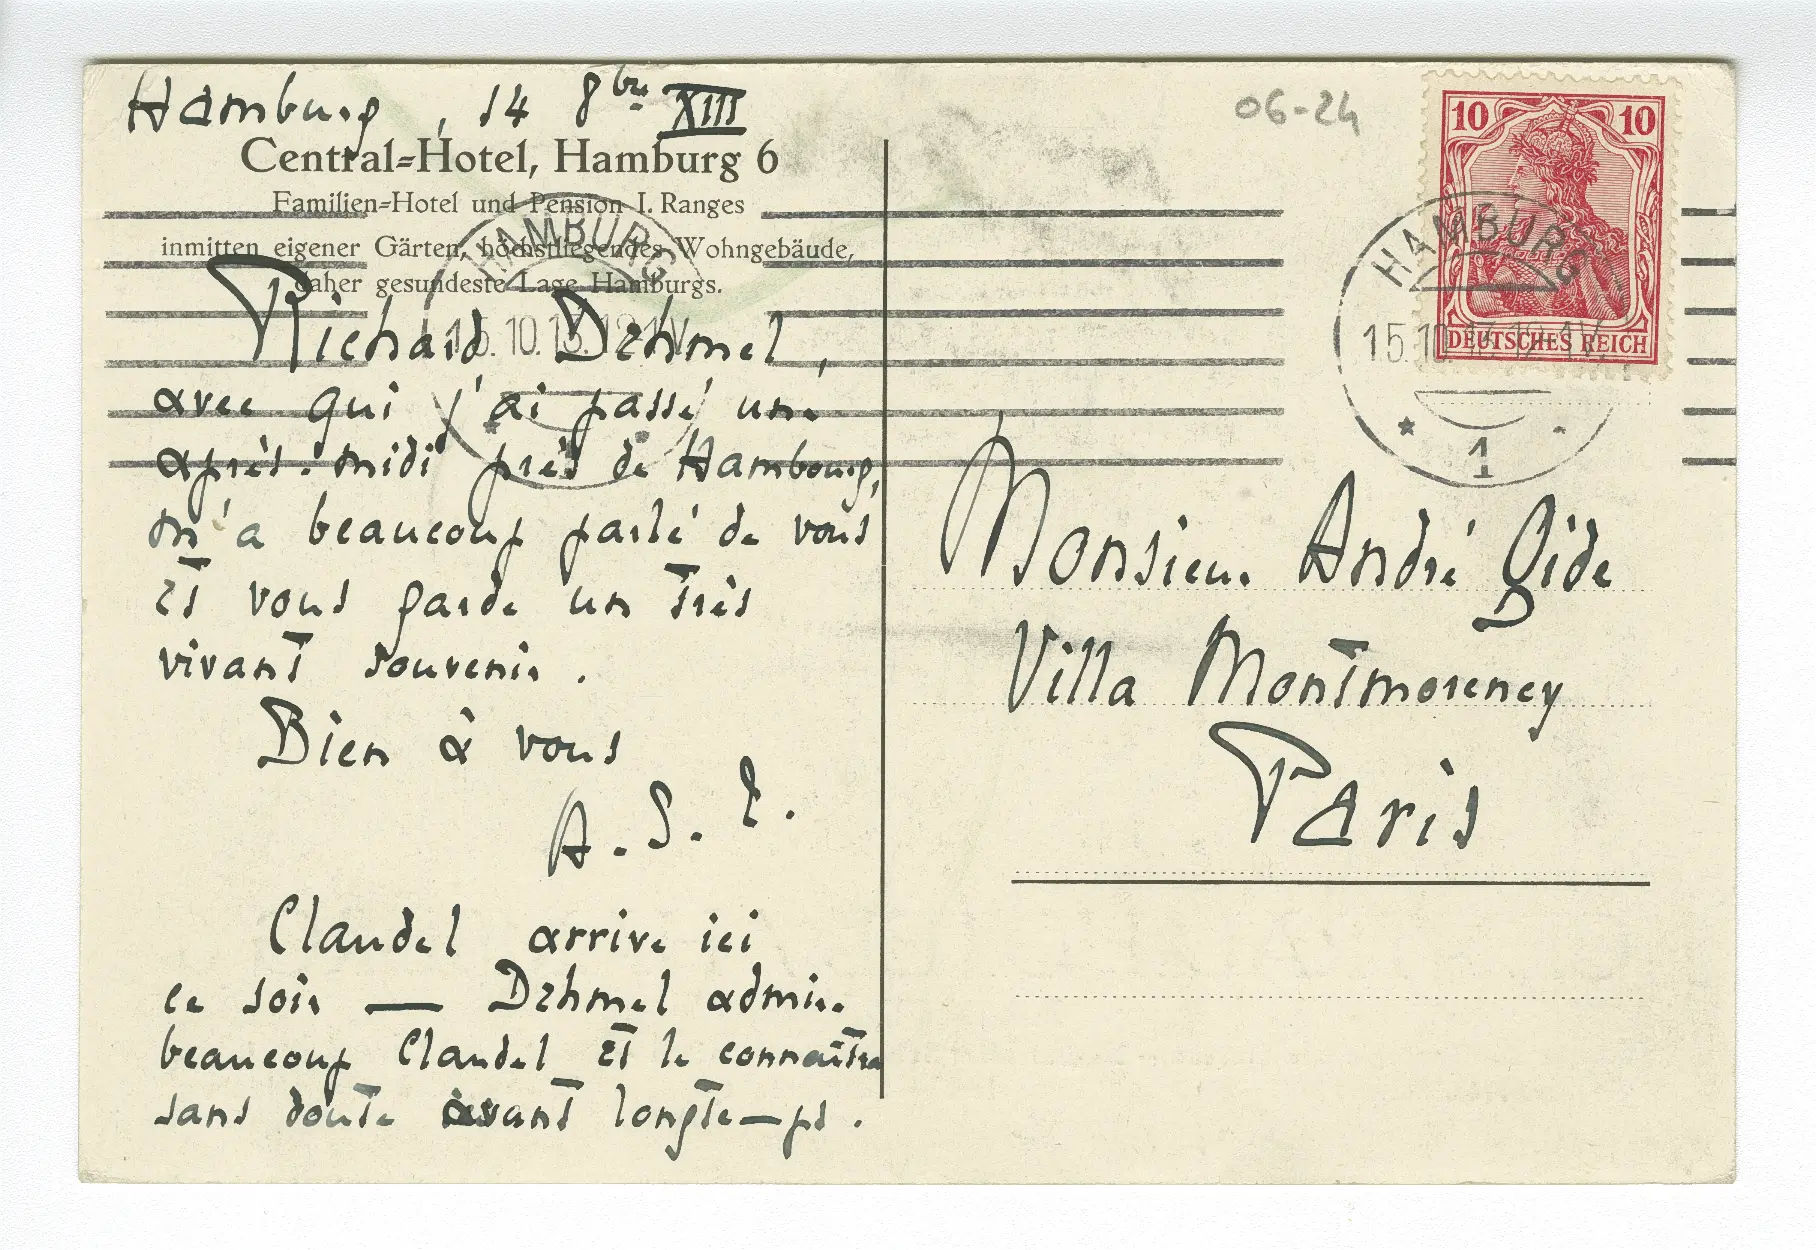 Hamburg, 14 8bre XIII
Central=Hotel, Hamburg 6
Familien=Hotel und Pension I. Ranges
inmitten eigener Gärten, höchstliegendes Wohngebäude,
daher gesundeste Lage Hamburgs.
Richard Dehmel,
avec qui j'ai passé une
après-midi près de Hambourg,
m'a beaucoup parlé de vous
et vous garde un très
vivant souvenir.
Bien à vous
A. S. L.
Claudel arrive ici
ce soir — Dehmel admire
beaucoup Claudel et le connaîtra
sans doute avant longtemps.
06-24
10 10
DEUTSCHES REICH
HAMBURG
15.10.13.12-1V.
* 1
HAMBURG
15.10.13.12-1V.
Monsieur André Gide
Villa Montmorency
Paris